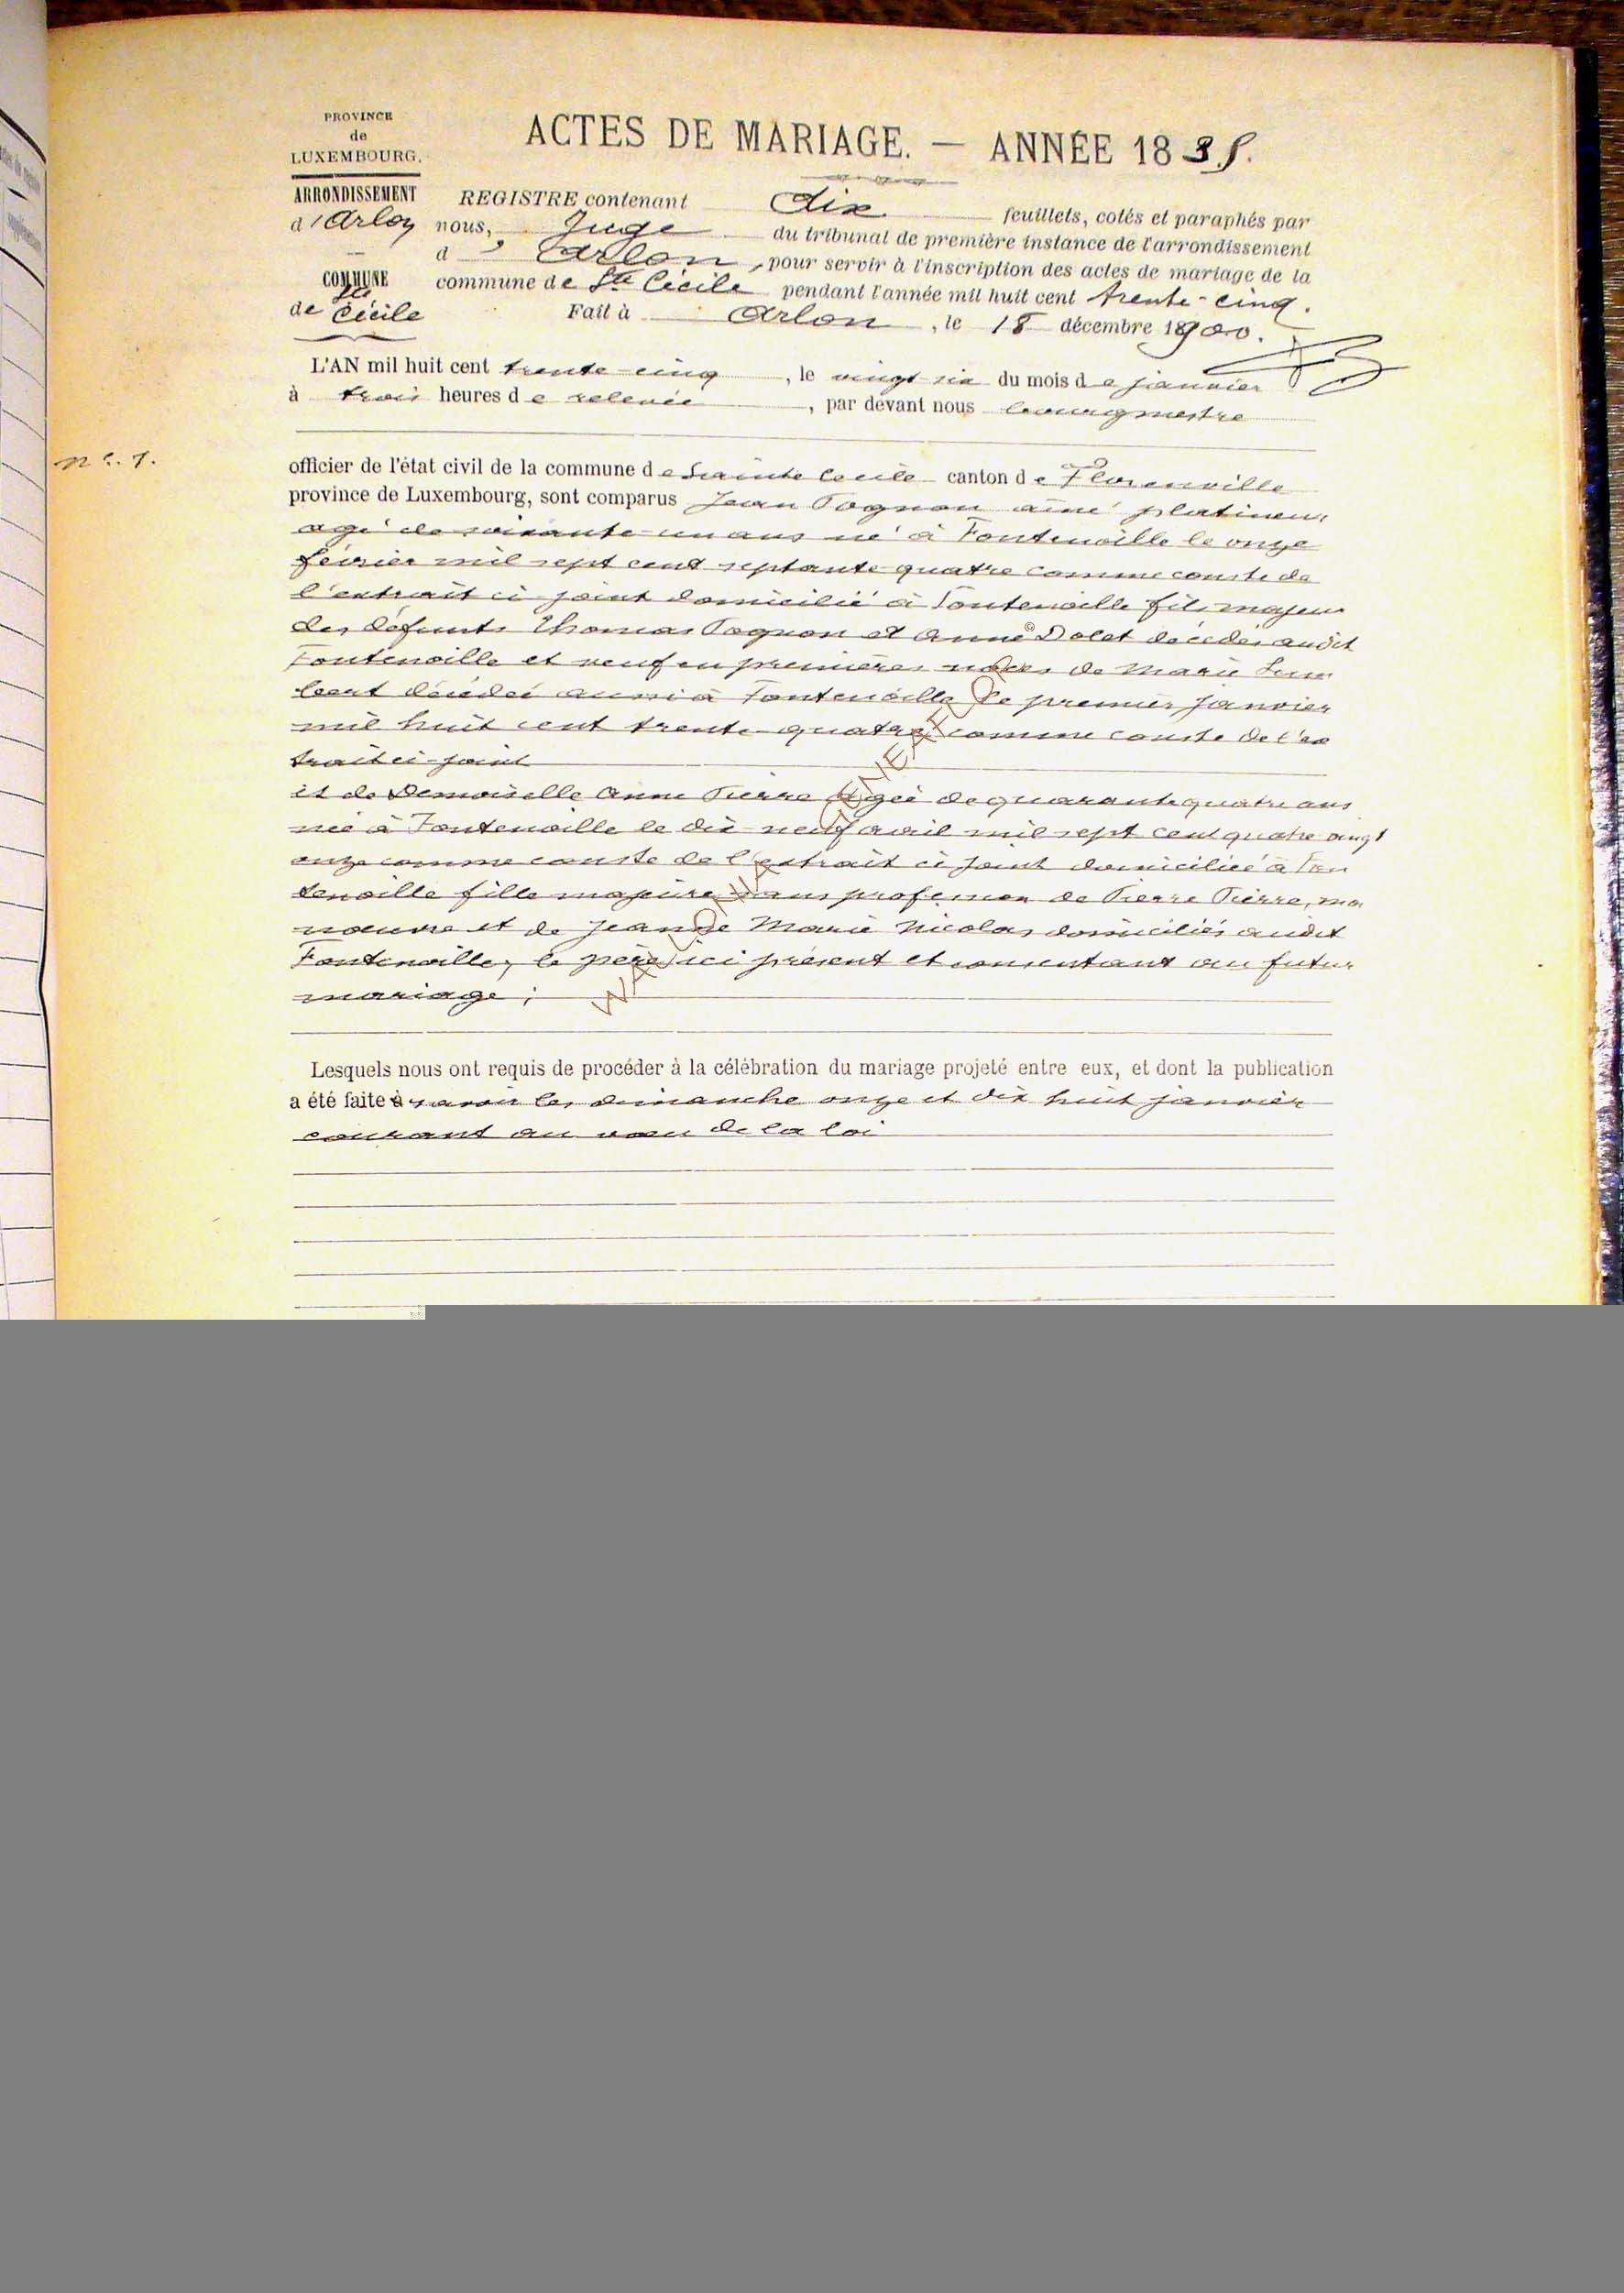 PROVINCE
de
LUXEMBOURG.
ARRONDISSEMENT
d'Arlon
COMMUNE
de Ste Cécile
ACTES DE MARIAGE. — ANNÉE 1835.
REGISTRE contenant dix feuillets, cotés et paraphés par
nous, Juge du tribunal de première instance de l'arrondissement
d'Arlon, pour servir à l'inscription des actes de mariage de la
commune de Ste Cécile pendant l'année mil huit cent trente-cinq.
Fait à Arlon, le 18 décembre 1900.
L'AN mil huit cent trente-cinq, le vingt six du mois de janvier
à trois heures de relevée, par devant nous bourgmestre
n°. 1.
officier de l'état civil de la commune de Sainte Cecile canton de Florenville
province de Luxembourg, sont comparus Jean Pognon ainé platineur
agé de soixante-un ans né à Fontenoille le onze
février mil sept cent septante quatre comme conste de
l'extrait ci-joint domicilié à Fontenoille fils majeur
des défunts Thomas Pognon et Anne Dolet décédés audit
Fontenoille et veuf en premières noces de Marie
décédée aussi à Fontenoille le premier janvier
mil huit cent trente-quatre comme conste de l'ex
trait ci-joint
et de Demoiselle Anne Pierre agée de quarante quatre ans
née à Fontenoille le dix-neuf avril mil sept cent quatre vingt
onze comme conste de l'extrait ci joint domiciliée à Fon
tenoille fille majeure sans profession de Pierre Pierre, ma
nœuvre et de Jeanne Marie Nicolas domiciliés audit
Fontenoille, le père ici présent et consentant au futur
mariage ;
Lesquels nous ont requis de procéder à la célébration du mariage projeté entre eux, et dont la publication
a été faite à savoir les dimanche onze et dix huit janvier
courant au vœu de la loi
© WALLONIA GENEAFLOR